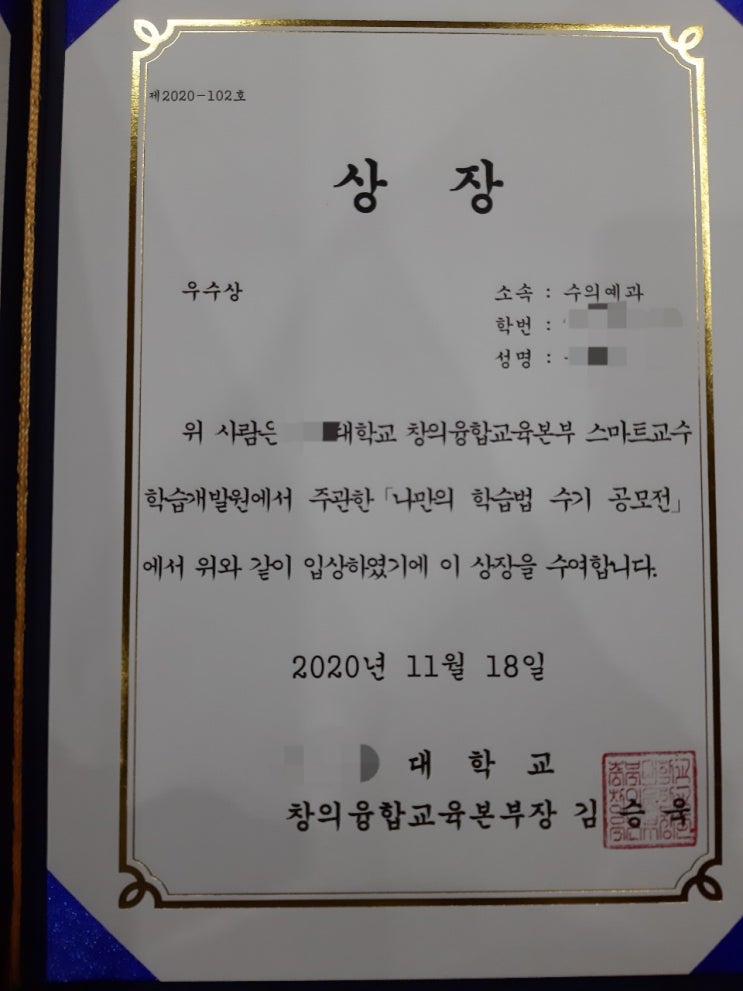 제2020-102호
상 장
우수상
소속 : 수의예과
학번 :
성명 :
위 사람은 대학교 창의융합교육본부 스마트교수
학습개발원에서 주관한 「나만의 학습법 수기 공모전」
에서 위와 같이 입상하였기에 이 상장을 수여합니다.
2020년 11월 18일
대 학 교
창의융합교육본부장 김 승 욱